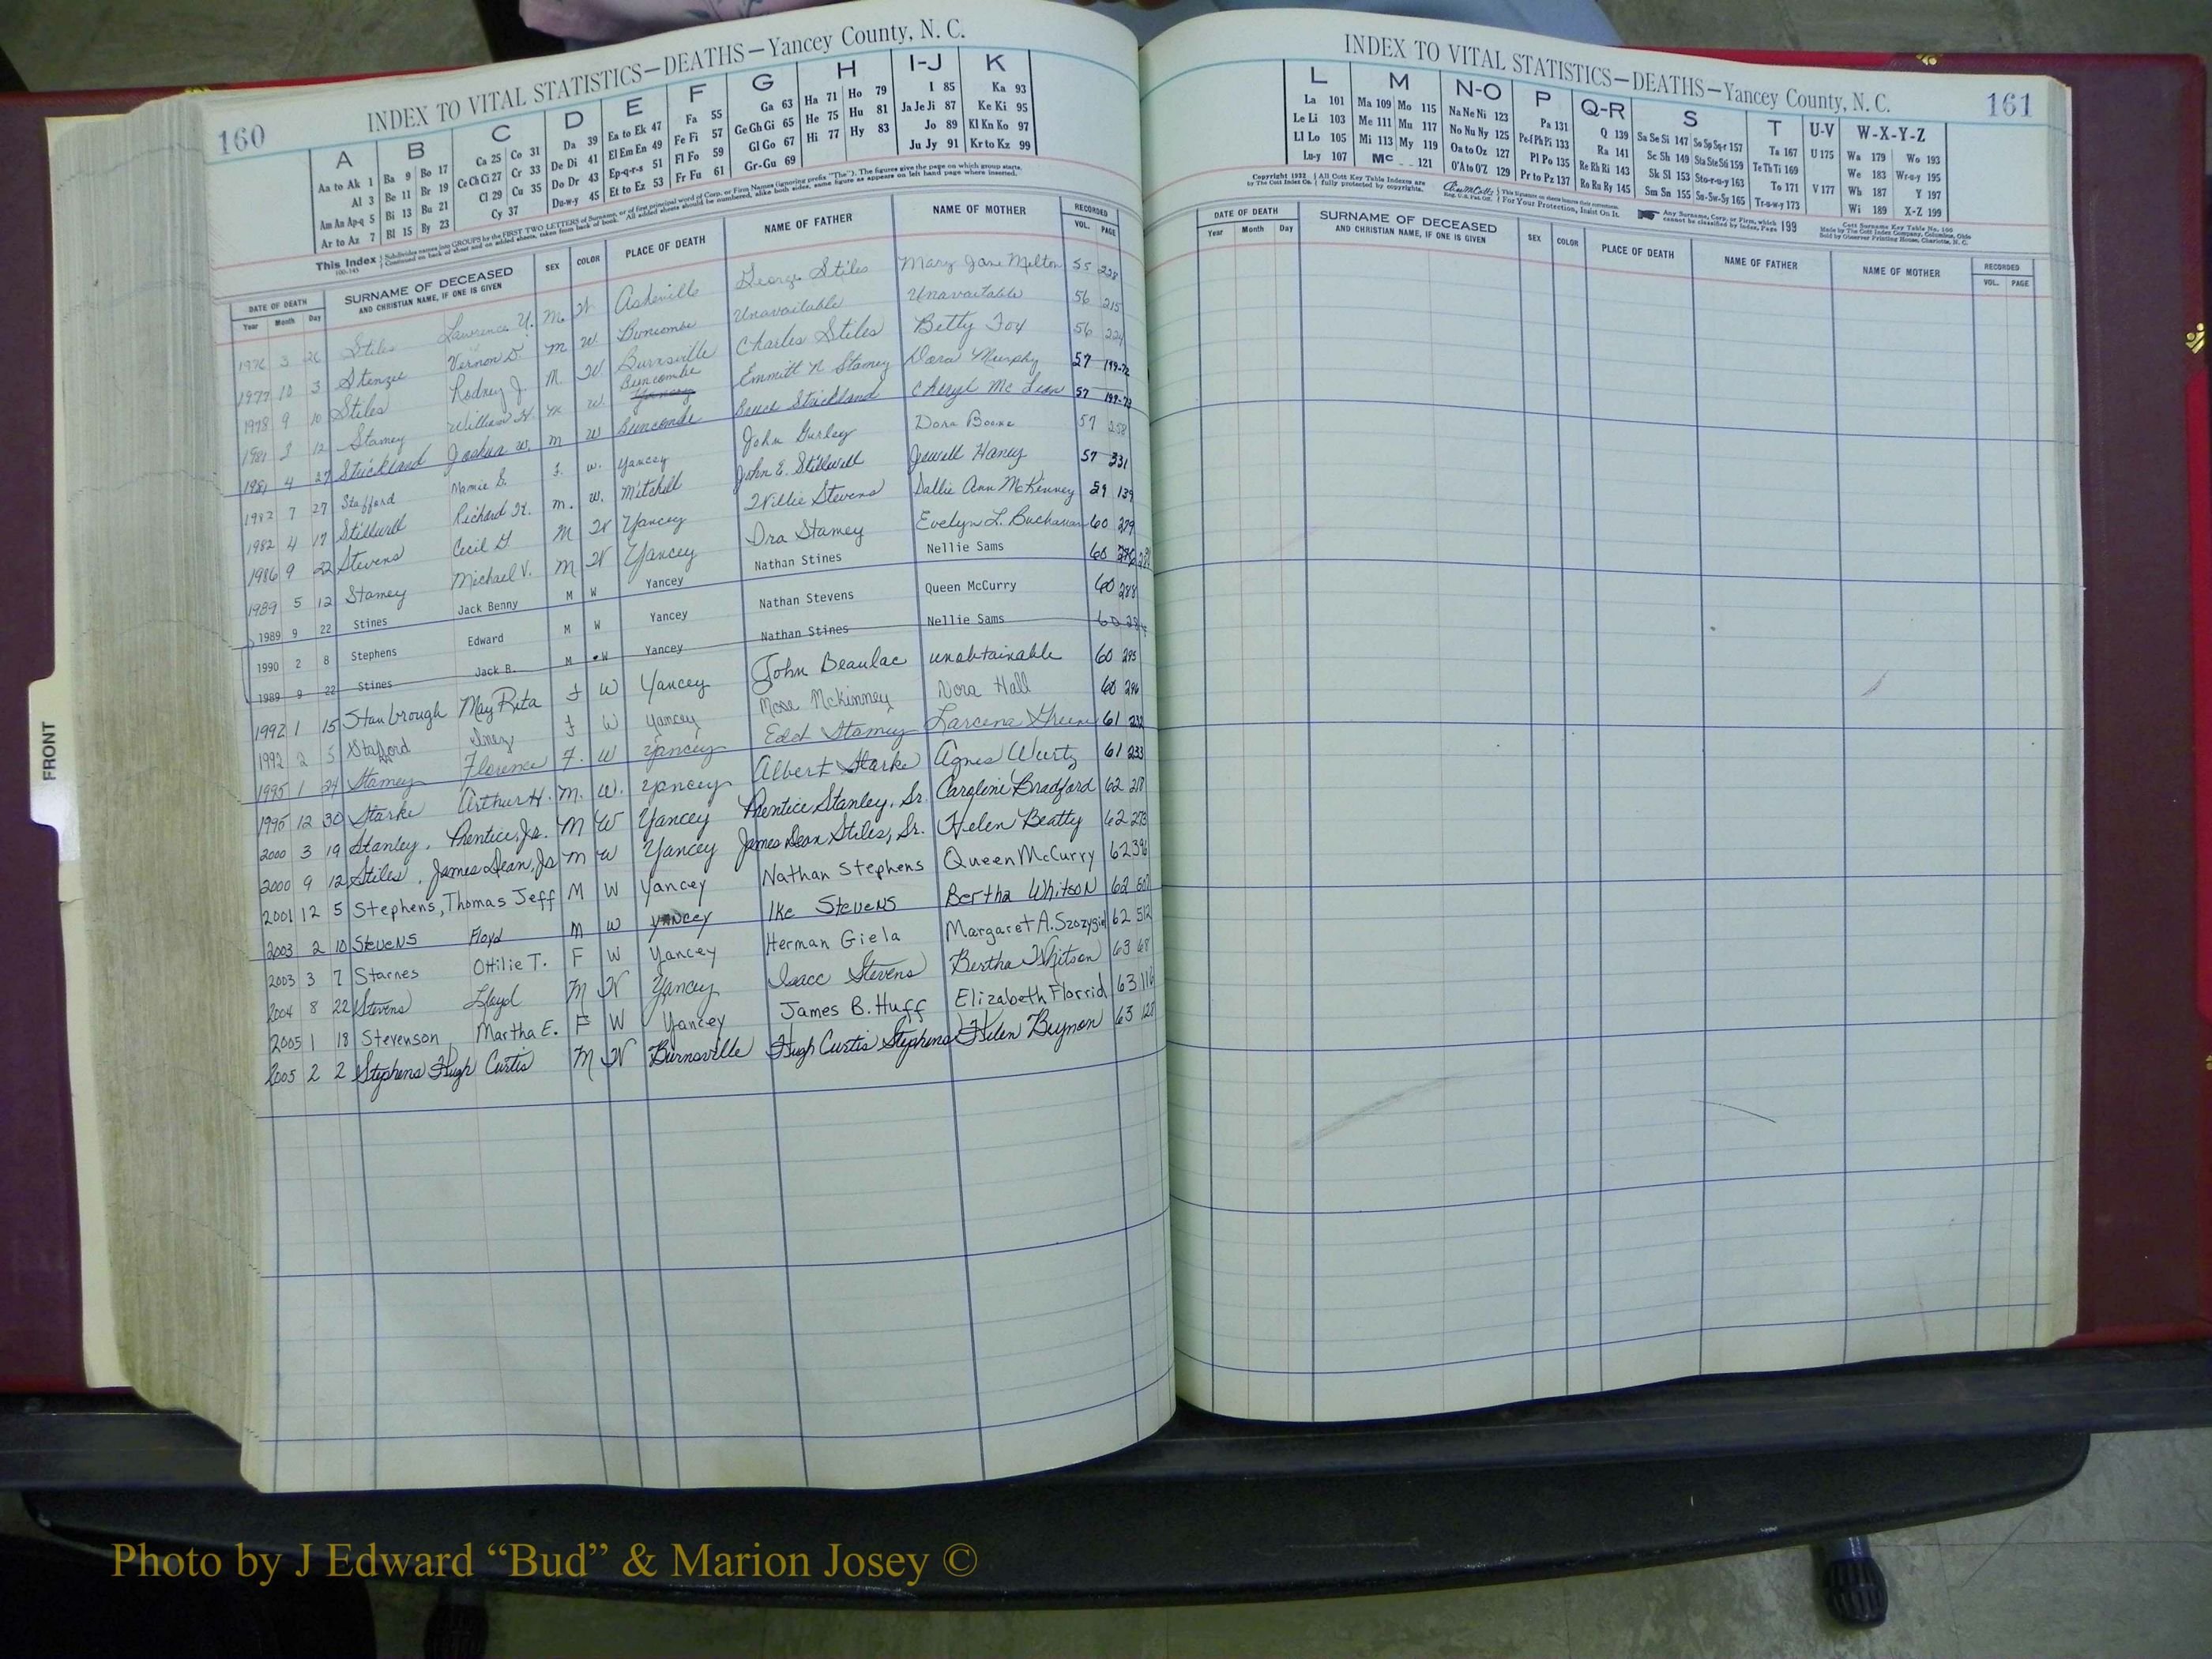 160
INDEX TO VITAL STATISTICS—DEATHS—Yancey County, N. C.
A B C D E F G H I-J K
Aa to Ak 1 Ba 9 Bo 17 Ca 25 Co 31 Da 39 Ea to Ek 47 Fa 55 Ga 63 Ha 71 Ho 79 I 85 Ka 93
Al 3 Be 11 Br 19 Ce Ch Ci 27 Cr 33 De Di 41 El Em En 49 Fe Fi 57 Ge Gh Gi 65 He 75 Hu 81 Ja Je Ji 87 Ke Ki 95
Am An Ap-q 5 Bi 13 Bu 21 Cl 29 Cu 35 Do Dr 43 Ep-q-r-s 51 Fl Fo 59 Gl Go 67 Hi 77 Hy 83 Jo 89 Kl Kn Ko 97
Ar to Az 7 Bl 15 By 23 Cy 37 Du-w-y 45 Et to Ez 53 Fr Fu 61 Gr-Gu 69 Ju Jy 91 Kr to Kz 99
This Index Subdivides names into GROUPS by the FIRST TWO LETTERS of Surname, or of first principal word of Corp. or Firm Names (ignoring prefix "The"). The figures give the page on which group starts.
Continued on back of sheet and on added sheets, taken from back of book. All added sheets should be numbered, alike both sides, same figure as appears on left hand page where inserted.
DATE OF DEATH SURNAME OF DECEASED SEX COLOR PLACE OF DEATH NAME OF FATHER NAME OF MOTHER RECORDED
Year Month Day AND CHRISTIAN NAME, IF ONE IS GIVEN VOL. PAGE
1976 3 26 Stiles Lawrence Y. M W Asheville George Stiles Mary Jane Melton 55 238
1977 10 3 Stenzie Vernon D. M W Buncombe Unavailable Unavailable 56 215
1978 9 10 Stiles Rodney J. M W Burnsville Charles Stiles Betty Fox 56 224
1981 3 12 Stamey William H. M W Buncombe Yancey Emmitt N Stamey Dora Murphy 57 199-72
1981 4 27 Strickland Joshua W. M W Buncombe Bruce Strickland Cheryl McLean 57 199-73
1982 7 27 Stafford Mamie G. F. W. Yancey John Gurley Dora Boone 57 258
1982 4 17 Stillwell Richard H. M. W. Mitchell John E. Stillwell Jewell Haney 57 331
1986 9 22 Stevens Cecil G. M W Yancey Willie Stevens Sallie Ann McKinney 59 139
1989 5 12 Stamey Michael V. M W Yancey Ora Stamey Evelyn L. Buchanan 60 279
1989 9 22 Stines Jack Benny M W Yancey Nathan Stines Nellie Sams 60
1990 2 8 Stephens Edward M W Yancey Nathan Stevens Queen McCurry 60 288
1989 9 22 Stines Jack B. M W Yancey Nathan Stines Nellie Sams 60
1992 1 15 Stanbrough May Rita F W Yancey John Beaulac unobtainable 60 295
1992 2 5 Stafford Inez F W Yancey Mose McKinney Nora Hall 60 296
1995 1 24 Stamey Florence F. W Yancey Edd Stamey Larcena Green 61 232
1995 12 30 Starke Arthur H. M. W. Yancey Albert Starke Agnes Wurtz 61 233
2000 3 19 Stanley, Prentice, Jr. M W Yancey Prentice Stanley, Sr. Caroline Bradford 62 218
2000 9 12 Stiles, James Dean, Jr M W Yancey James Dean Stiles, Sr. Helen Beatty 62 273
2001 12 5 Stephens, Thomas Jeff M W Yancey Nathan Stephens Queen McCurry 62 396
2003 2 10 Stevens Floyd M W Yancey Ike Stevens Bertha Whitson 62
2003 3 7 Starnes Ottilie T. F W Yancey Herman Giela Margaret A. Szozygiel 62 512
2004 8 22 Stevens Lloyd M W Yancey Isacc Stevens Bertha Whitson 63 68
2005 1 18 Stevenson, Martha E. F W Yancey James B. Huff Elizabeth Florrid 63 116
2005 2 2 Stephens Hugh Curtis M W Burnsville Hugh Curtis Stephens Helen Beynon 63 128
FRONT
INDEX TO VITAL STATISTICS—DEATHS—Yancey County, N. C.
161
L M N-O P Q-R S T U-V W-X-Y-Z
La 101 Ma 109 Mo 115 Na Ne Ni 123 Pa 131 Q 139 Sa Se Si 147 So Sp Sq-r 157 Ta 167 U 175 Wa 179 Wo 193
Le Li 103 Me 111 Mu 117 No Nu Ny 125 Pe-f Ph Pi 133 Ra 141 Sc Sh 149 Sta Ste Sti 159 Te Th Ti 169 We 183 Wr-u-y 195
Ll Lo 105 Mi 113 My 119 Oa to Oz 127 Pl Po 135 Re Rh Ri 143 Sk Sl 153 Sto-r-u-y 163 To 171 V 177 Wh 187 Y 197
Lu-y 107 Mc 121 O'A to O'Z 129 Pr to Pz 137 Ro Ru Ry 145 Sm Sn 155 Su-Sw-Sy 165 Tr-u-w-y 173 Wi 189 X-Z 199
Copyright 1932 by The Cott Index Co. All Cott Key Table Indexes are fully protected by copyrights. For Your Protection, Insist On It. Any Surname, Corp. or Firm, which cannot be classified by Index, Page 199
Cott Surname Key Table No. 100
Made by The Cott Index Company, Columbus, Ohio
Sold by Observer Printing House, Charlotte, N. C.
DATE OF DEATH SURNAME OF DECEASED SEX COLOR PLACE OF DEATH NAME OF FATHER NAME OF MOTHER RECORDED
Year Month Day AND CHRISTIAN NAME, IF ONE IS GIVEN VOL. PAGE
Photo by J Edward “Bud” & Marion Josey ©